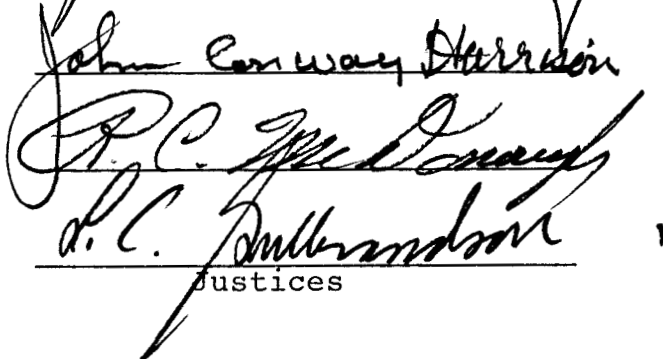 John Conway Harrison
R. C. McDonough
L. C. Gulbrandson
Justices